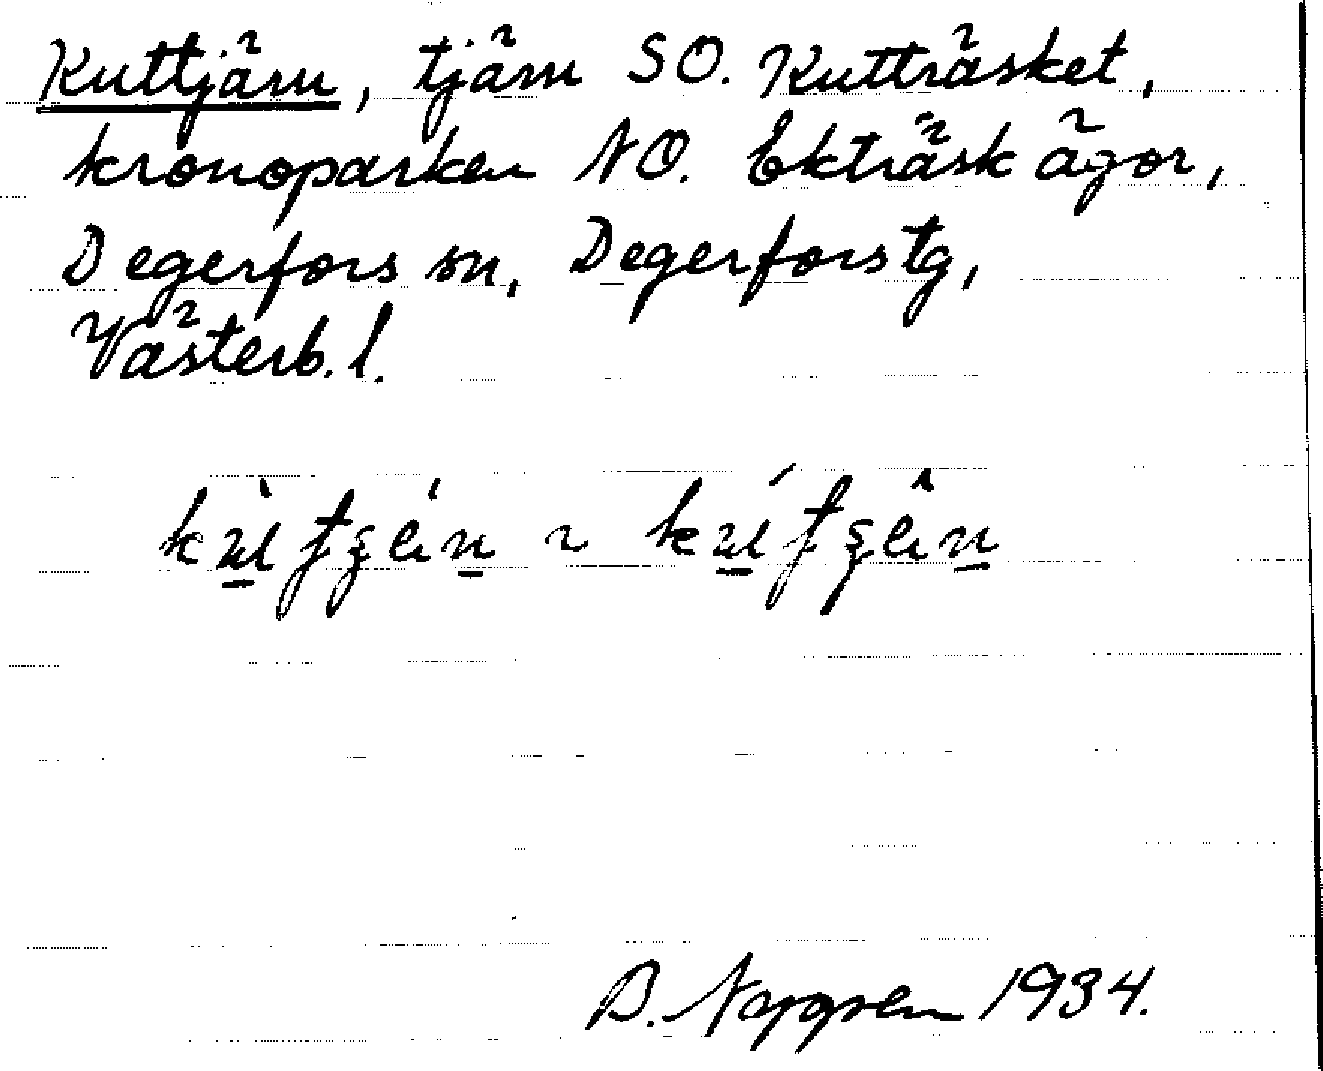 Kuttjärn, tjärn SO. Kutträsket,
kronoparken NO. Ekträsk ägor,
Degerfors sn, Degerfors tg,
Västerb. l.
B. 1934.